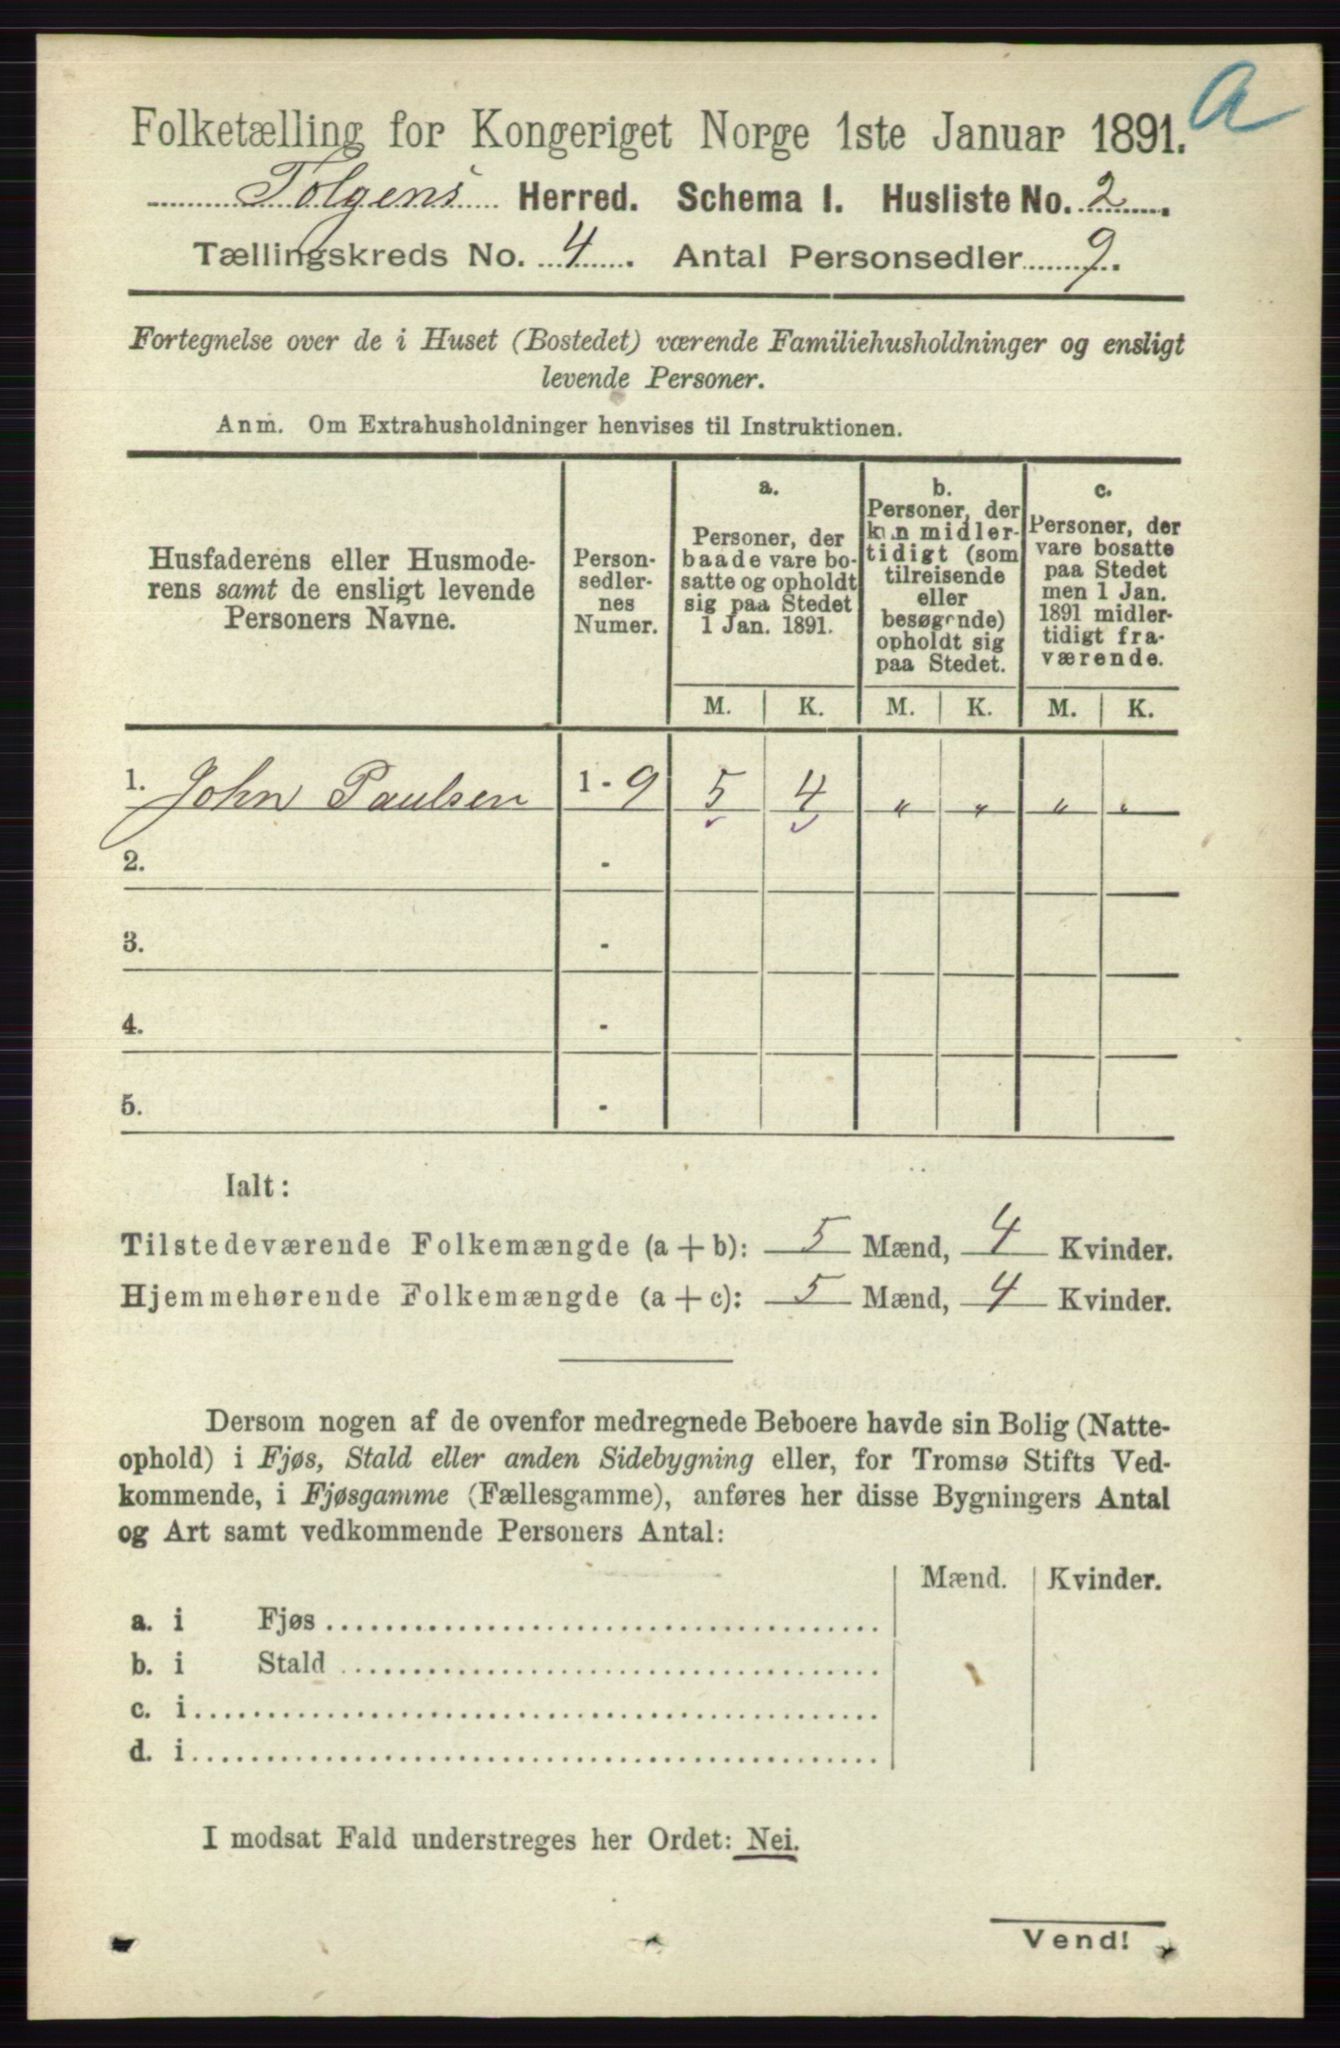 a
Folketælling for Kongeriget Norge 1ste Januar 1891.
Tolgens Herred. Schema I. Husliste No. 2.
Tællingskreds No. 4. Antal Personsedler 9.
Fortegnelse over de i Huset (Bostedet) værende Familiehusholdninger og ensligt
levende Personer.
Anm. Om Extrahusholdninger henvises til Instruktionen.
Husfaderens eller Husmode-
rens samt de ensligt levende
Personers Navne.
Person-
sedler-
nes
Numer.
a.
Personer, der
baade vare bo-
satte og opholdt
sig paa Stedet
1 Jan. 1891.
b.
Personer, der
kun midler-
tidigt (som
tilreisende
eller
besøgende)
opholdt sig
paa Stedet.
c.
Personer, der
vare bosatte
paa Stedet
men 1 Jan.
1891 midler-
tidigt fra-
værende.
M. K. M. K. M. K.
1. John Paulsen 1 - 9 5 4 " " " "
2. -
3. -
4. -
5. -
Ialt:
Tilstedeværende Folkemængde (a + b): 5 Mænd, 4 Kvinder.
Hjemmehørende Folkemængde (a + c): 5 Mænd, 4 Kvinder.
Dersom nogen af de ovenfor medregnede Beboere havde sin Bolig (Natte-
ophold) i Fjøs, Stald eller anden Sidebygning eller, for Tromsø Stifts Ved-
kommende, i Fjøsgamme (Fællesgamme), anføres her disse Bygningers Antal
og Art samt vedkommende Personers Antal:
Mænd. Kvinder.
a. i Fjøs
b. i Stald
c. i
d. i
I modsat Fald understreges her Ordet: Nei.
Vend!